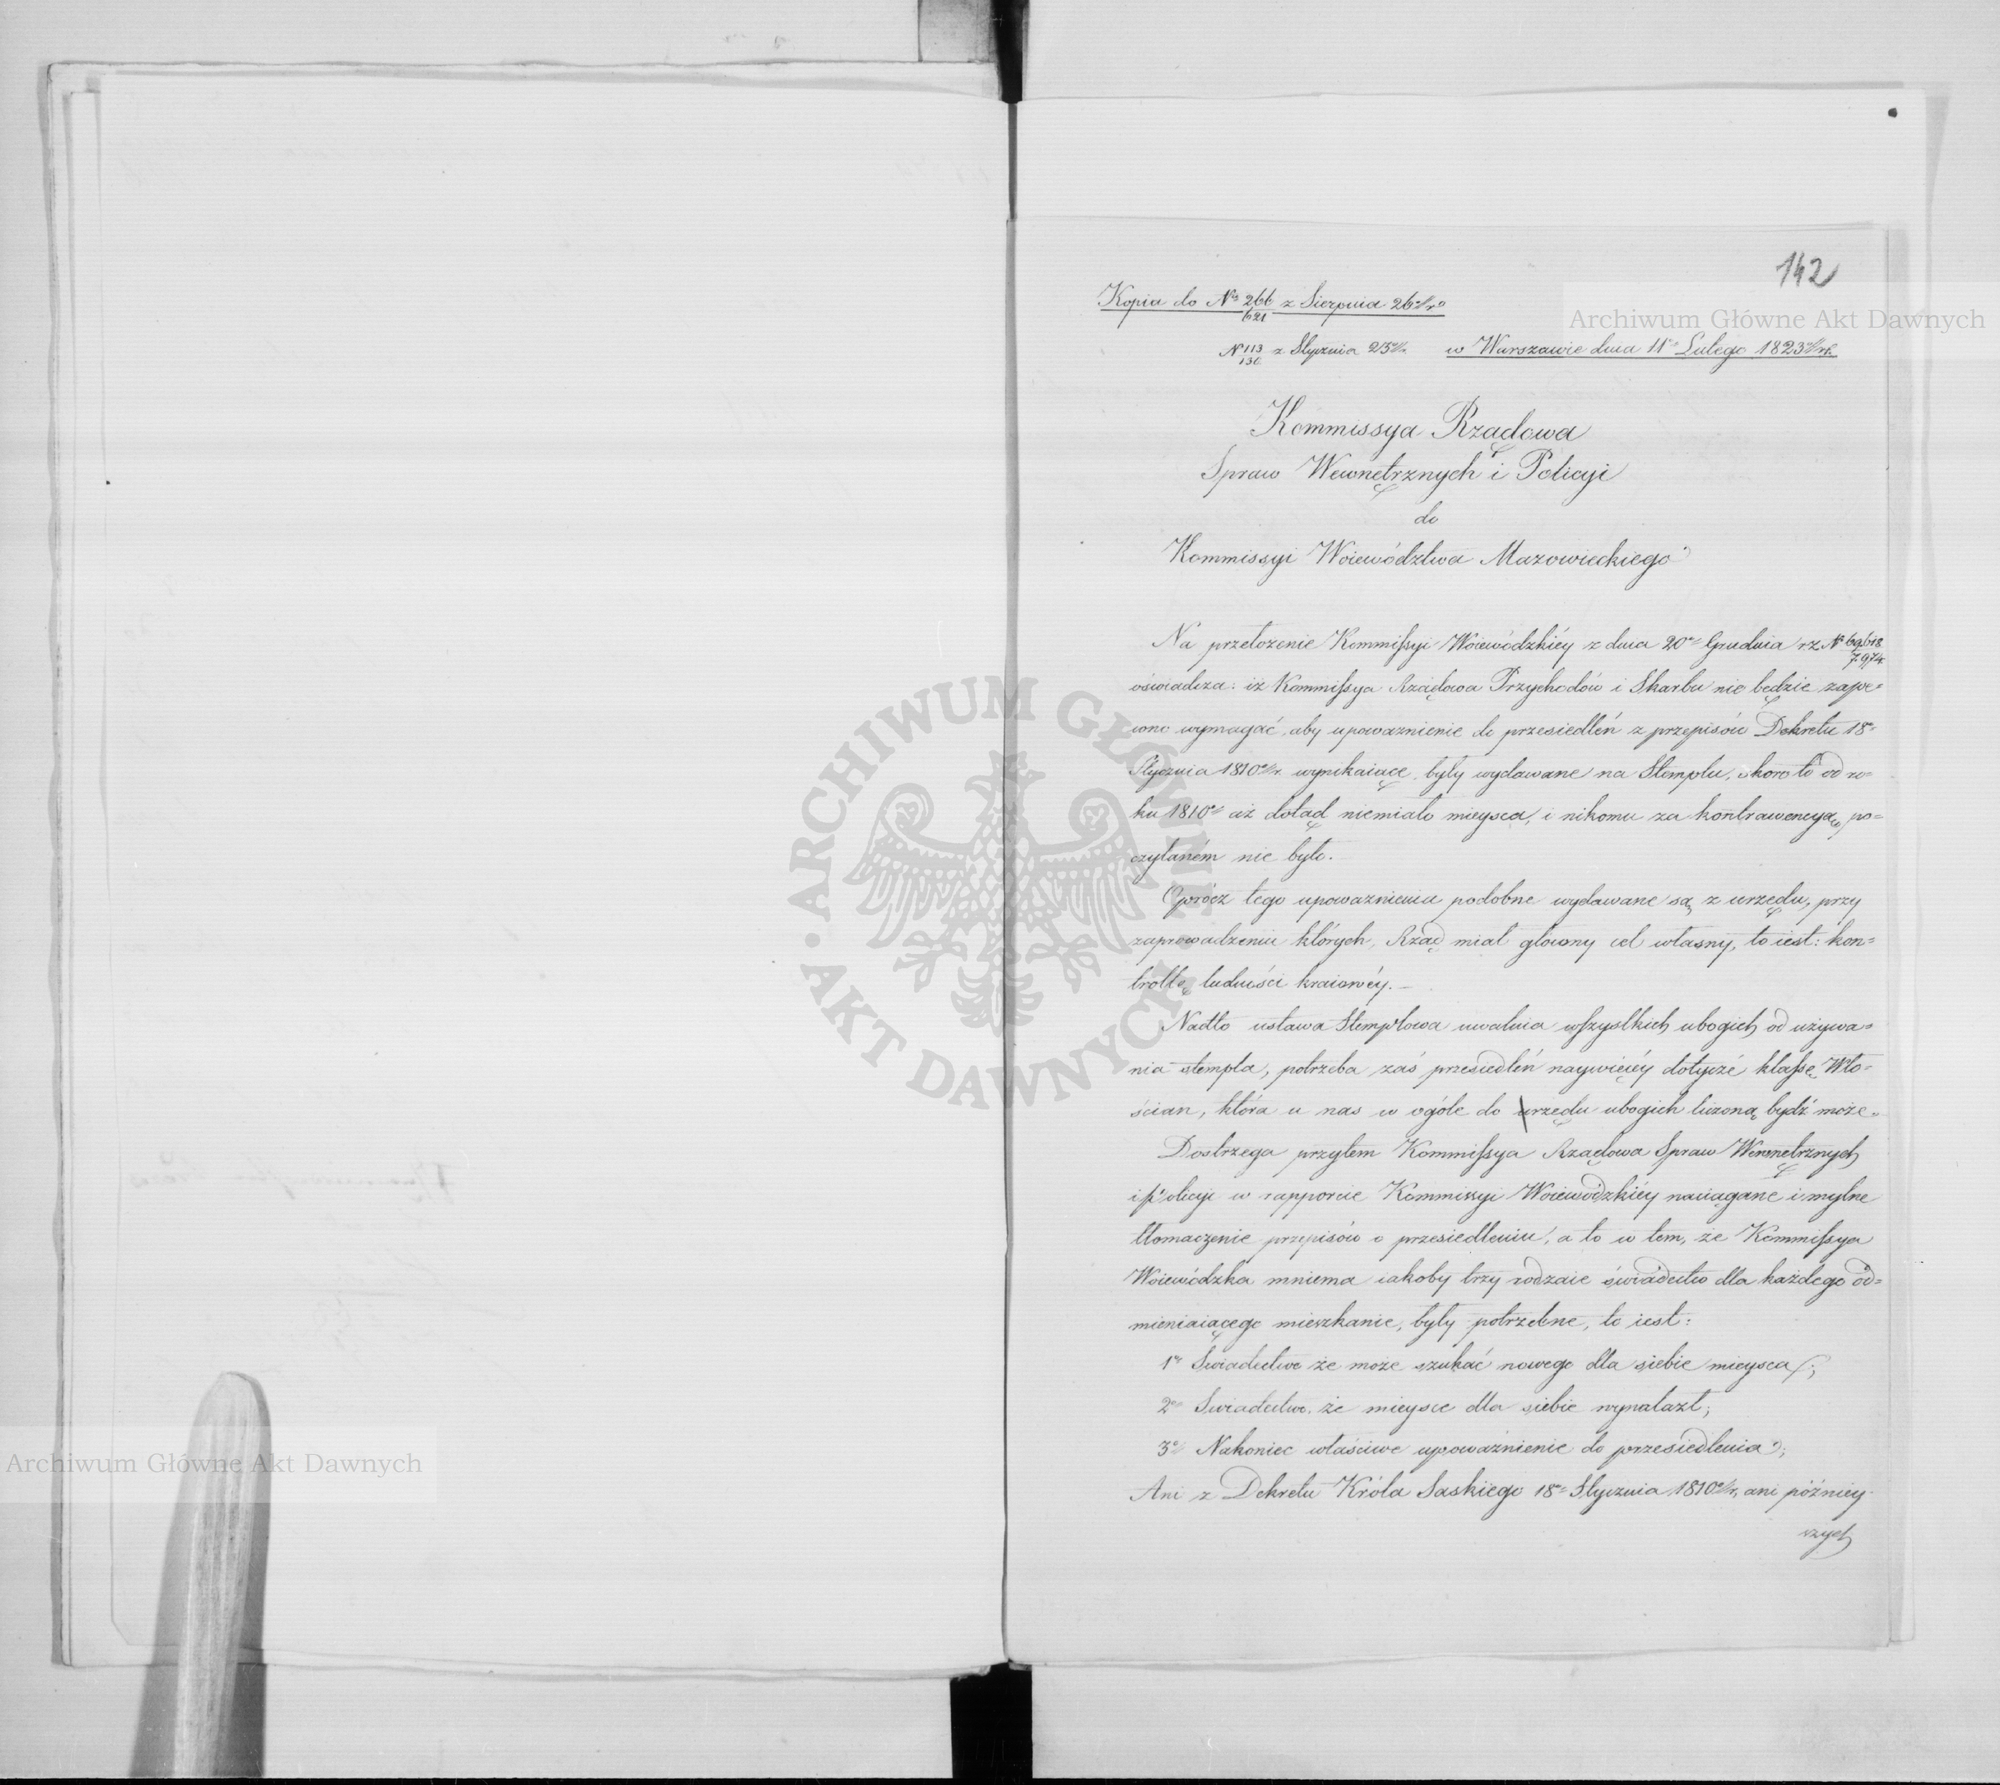 142
Kopia do N° 266/621 z Sierpnia 26 ro
N 113/130 z Stycznia 23 r. w Warszawie dnia 11° Lutego 1823 rk.
Kommissya Rządowa
Spraw Wewnętrznych i Policyi
do
Kommissyi Woiewództwa Mazowieckiego
Na przełożenie Kommissyi Woiewódzkiéy z dnia 20° Grudnia r z N° 69,618/7.974
oświadcza: iż Kommissya Rządowa Przychodów i Skarbu nie będzie zape=
wno wymagać, aby upoważnienie do przesiedleń z przepisów Dekretu 18°
Stycznia 1810 r. wynikaiące, były wydawane na Stemplu, skoro to od ro=
ku 1810° aż dotąd niemiało mieysca, i nikomu za kontrawencyą po=
czytaném nie było.
Oprócz tego upoważnienia podobne wydawane są z urzędu, przy
zaprowadzeniu których, Rząd miał główny cel własny, to iest: kon=
trollę ludności kraiowéy.—
Nadto ustawa Stemplowa uwalnia wszystkich ubogich od używa=
nia stempla, potrzeba zaś przesiedleń naywięcéy dotycze klassę Wło=
ścian, która u nas w ogóle do urzędu ubogich liczoną bydź może.
Dostrzega przytem Kommissya Rządowa Spraw Wewnętrznych
i Policyi w rapporcie Kommissyi Woiewódzkiéy naciągane i mylne
tłomaczenie przepisów o przesiedleniu, a to w tem, że Kommissya
Woiewódzka mniema iakoby trzy rodzaie świadectw dla każdego od=
mieniaiącego mieszkanie, były potrzebne, to iest:
1° Świadectwo że może szukać nowego dla siebie mieysca;
2° Swiadectwo, że mieysce dla siebie wynalazł;
3° Nakoniec właściwe upoważnienie do przesiedlenia;
Ani z Dekretu Króla Saskiego 18° Stycznia 1810 r, ani późniey
szych
Archiwum Główne Akt Dawnych
Archiwum Główne Akt Dawnych
ARCHIWUM GŁÓWNE • AKT DAWNYCH •